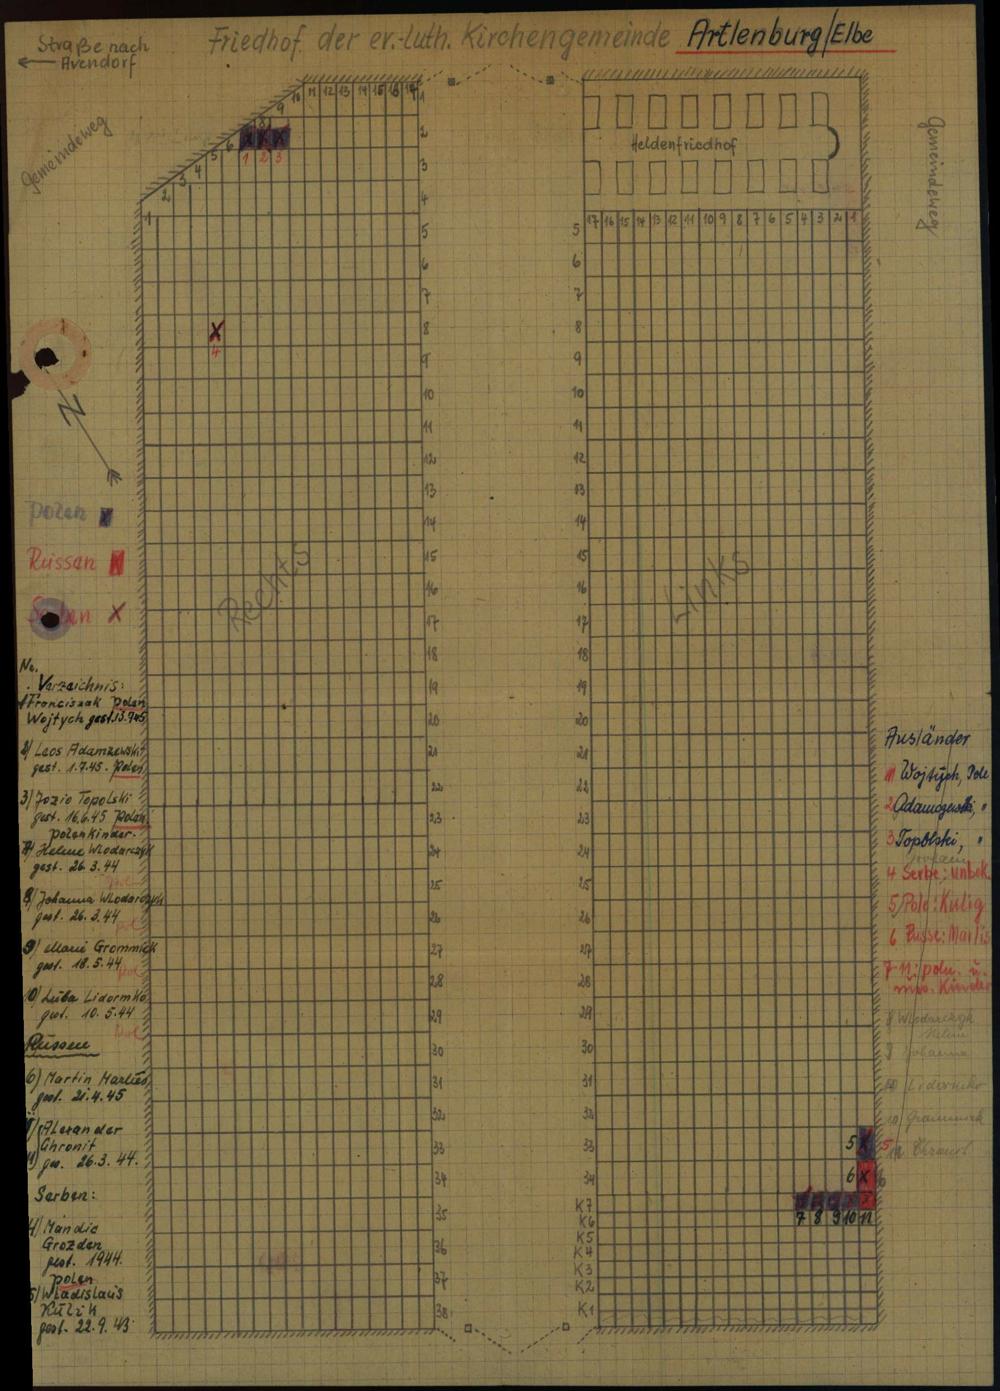 Friedhof der ev.-luth. Kirchengemeinde Artlenburg/Elbe
Straße nach
Avendorf
Gemeindeweg
Gemeindeweg
Heldenfriedhof
10 11 12 13 14 15 16 17
9
8
6
5
4
3
2
1
1 2 3
4
1
2
3
4
5
6
7
8
9
10
11
12
13
14
15
16
17
18
19
20
21
22
23
24
25
26
27
28
29
30
31
32
33
34
35
36
37
38
17 16 15 14 13 12 11 10 9 8 7 6 5 4 3 2 1
5
6
7
8
9
10
11
12
13
14
15
16
17
18
19
20
21
22
23
24
25
26
27
28
29
30
31
32
33
34
K7
K6
K5
K4
K3
K2
K1
5
5
6
6
7 8 9 10 11
Rechts
Links
N
Polen
Russen
Serben X
No.
Verzeichnis:
1) Franciszak Polen
Wojtych
2) Leos Adamzewski
gest. 1.7.45. Polen
3) Jozio Topolski
gest. 16.6.45 Polen
Polenkinder.
Helene Wlodarczyk
gest. 26.3.44
8) Johanna Wlodarczyk
gest. 26.3.44
pol
9) Marie Grommick
gest. 18.5.44
pol
10) Luba Lidormko
gest. 10.5.44
Pol
Russen
6) Martin
gest. 21.4.45
Alexander
Chronit
11) ges. 26.3.44.
Serben:
4) Mandic
Grozden
gest. 1944.
Polen
5) Wladislaus
Kulik
gest. 22.9.43
Ausländer
1 Wojtych, Pole
2 Adamczewski, "
3 Topolski, "
4 Serbe: unbek.
5 Pole: Kulig
6 Russe:
7-11: poln. u.
russ. Kinder
8 Wlodarczyk
Johanna
Lidormko
Grammick